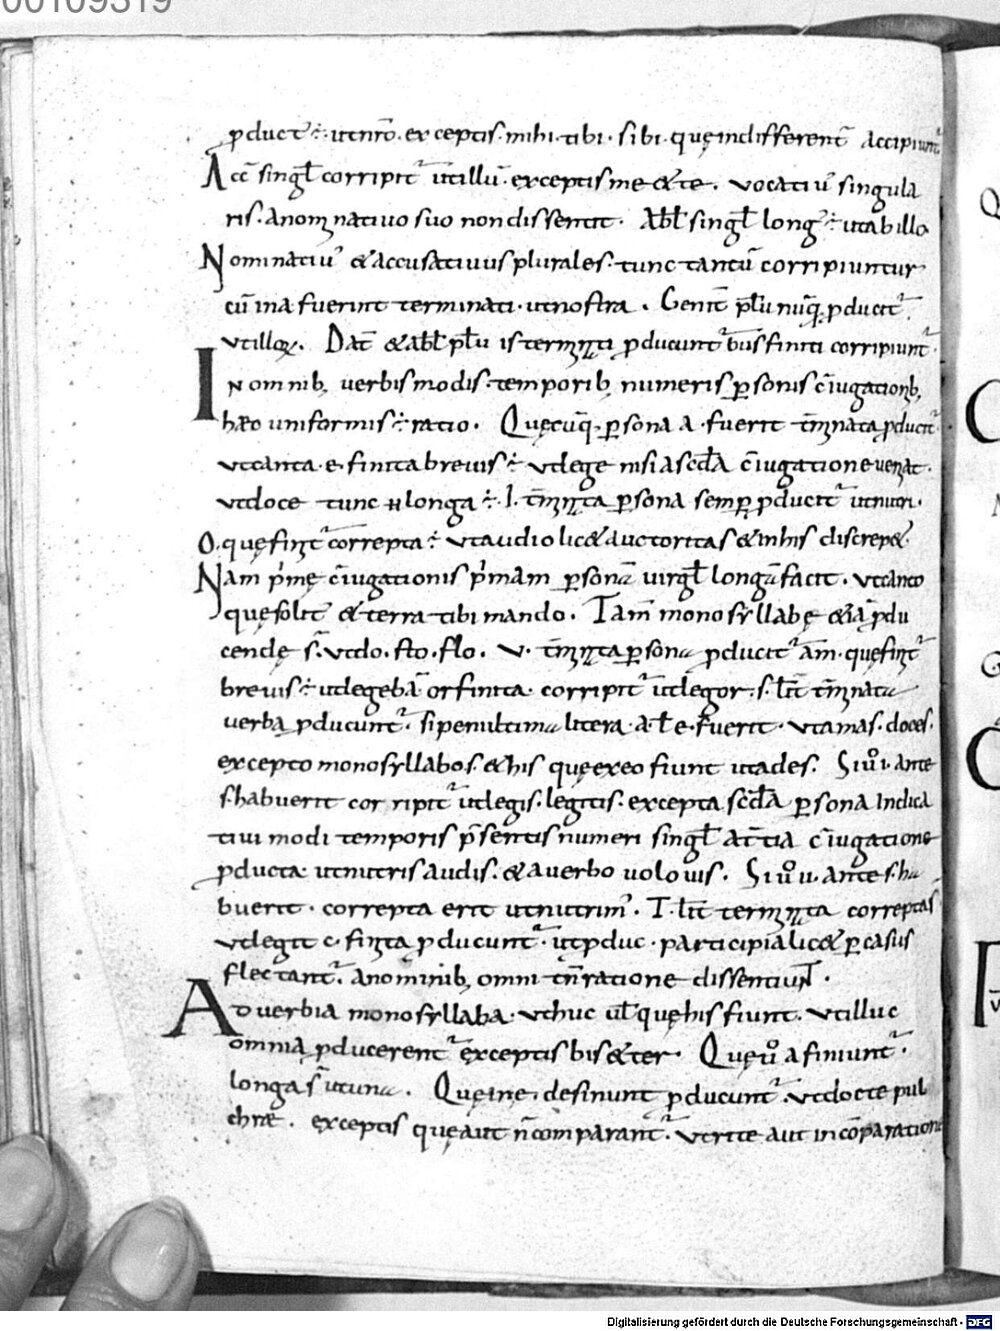 00109319
ꝑducť ÷ ut nr̄o. exceptis. mihi. tibi. sibi. quę indifferenť accipiunť
Acc̄ singl̄ corripiť ut illū. exceptis me &te. vocatiu᷒ singula
ris. a nominativo suo non dissentit. Abl̄ singl̄ long᷒ ÷ ut ab illo
Nominatiu᷒ & accusativus plurales. tunc tantū corripiuntur
cū in a fuerint terminati. ut nostra. Genit̄ pl̄u nūq̄ ꝓduciť.
ut illoꝝ. Dat̄ & abl̄ pl̄u is terminati ꝓducunť bus finiti corripiunť.
In omnib; verbis modis. temporib; numeris ꝑsonis c̄iugationib;
haec uniformis ÷ ratio. Quęcūq; ꝑsona a. fuerit t̄minata ꝓduciť
ut canta. e. finita brevis ÷ ut lege nisi a scd̄a c̄iugatione veniat.
ut doce tunc n̄ longa ÷. I. t̄minata ꝑsona semꝑ ꝓduciť ut nutri.
O. quę finiť correpta ÷ ut audio lic& auctoritas & in his discrep&.
Nam p̄mę c̄iugationis p̄mam ꝑsonā uirgl̄ longā facit. ut canto
quę solit & terra tibi mando. Tam̄ monosyllabę & iā ꝓdu
cendę s̄. ut do. sto. flo. u. t̄minata ꝑsona ꝓduciť am̄. quę finiť
brevis ÷ ut legebā or finita. corripiť ut legor. s. lit̄ t̄minata
verba ꝓducunť. si penultima litera. a. ł e. fuerit. ut amas. doces.
excepto monosyllabos. & his quę ex eo fiunt ut ades. Siů i. ante
s. habuerit corripiť ut legis. legitis. excepta scd̄a ꝑsona indica
tivi modi temporis p̄sentis numeri singl̄ a t̄tia c̄iugatione
ꝓducta ut nutris audis. & a verbo volo vis. Siů u. ante s. ha
buerit. correpta erit ut nutrim᷒. T. lit̄ terminata correptas
ut legit c. finita ꝓducunť. ut ꝓduc. participia lic& ꝑ casus
flectanť. a nominib; omni tn̄ ratione dissentiunt.
Adverbia monosyllaba. ut huc ul̄ quę his fiunt. ut illuc
omnia ꝓducerenť exceptis bis & ter. Quęů a finiunť.
longa s̄ ut una. Quę in e. desinunt ꝓducunť. ut docte pul
chrae. exceptis quę aut n̄ comparanť. ut rite aut in cōparatione
Digitalisierung gefördert durch die Deutsche Forschungsgemeinschaft - DFG